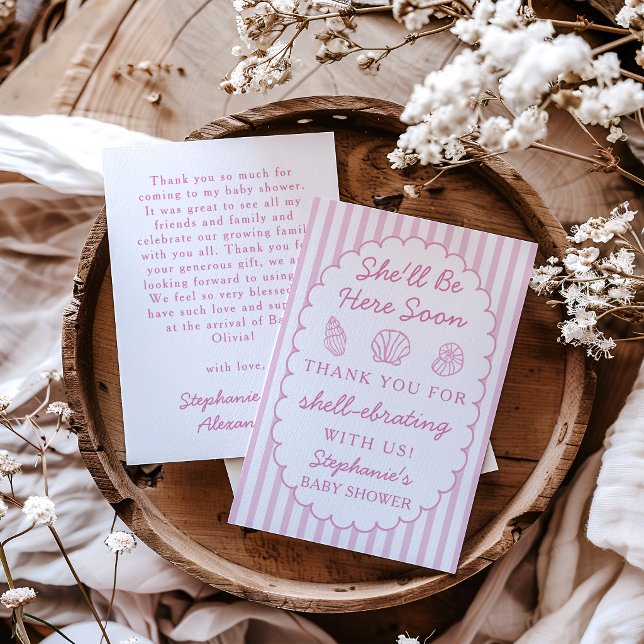 Thank you so much for
coming to my baby shower.
It was great to see all my
friends and family and
celebrate our growing
with you all. Thank you
your generous gift, we
looking forward to
We feel so very blessed
have such love and
at the arrival of
Olivia!
with love,
Stephanie
She'll Be
Here Soon
THANK YOU FOR
shell-ebrating
WITH US!
Stephanie's
BABY SHOWER